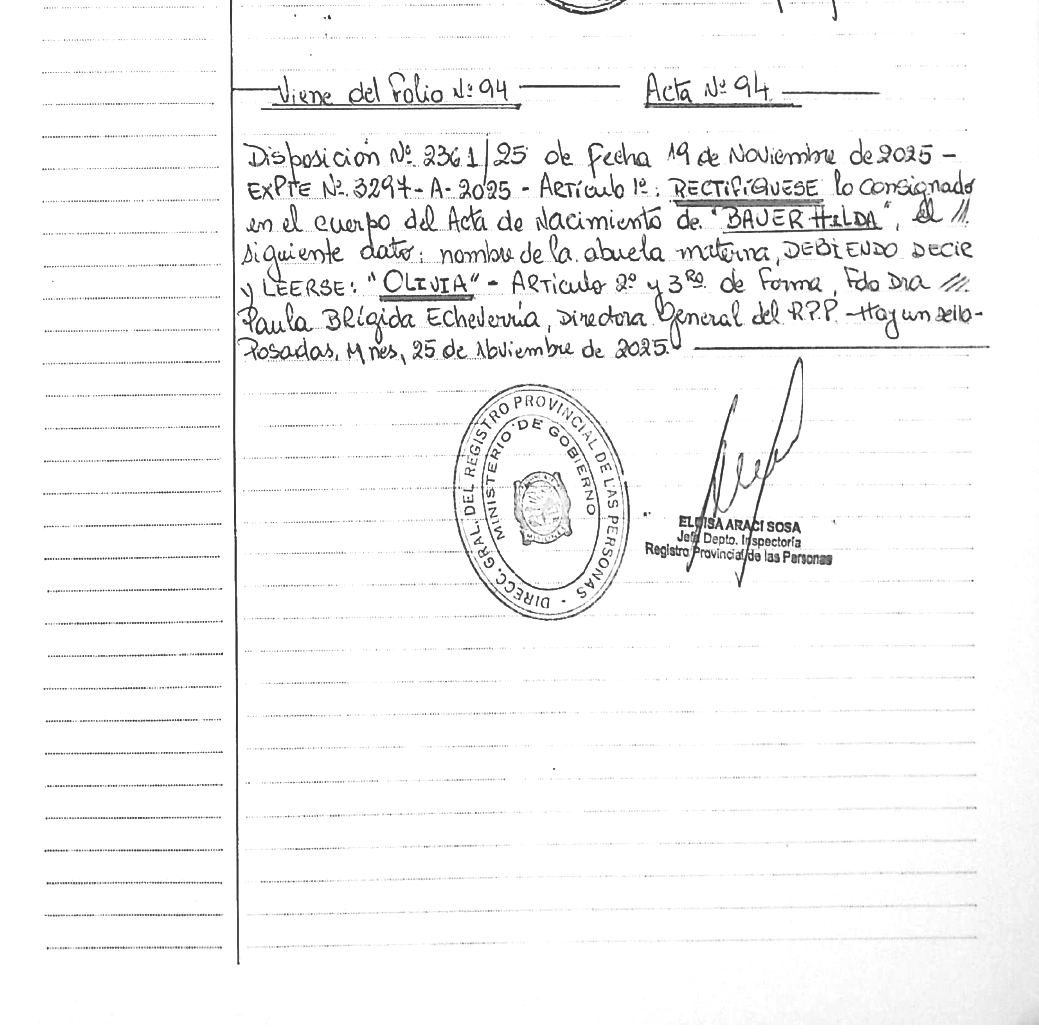 Viene del Folio Nº 94 Acta Nº 94.
Disposición Nº 2361/25 de Fecha 19 de Noviembre de 2025 -
EXPTE Nº. 3297-A-2025 - Artículo 1º: RECTIFÍQUESE lo consignado
en el cuerpo del Acta de Nacimiento de. "BAUER HILDA", el ///.
siguiente dato: nombre de la abuela materna, DEBIENDO DECIR
y LEERSE: "OLIVIA" - Artículo 2º y 3ro. de Forma, Fdo Dra ///.
Paula Brígida Echeverría, Directora General del R.P.P. -Hay un sello-
Posadas, Mnes, 25 de Noviembre de 2025.
DIRECC. GRAL. DEL REGISTRO PROVINCIAL DE LAS PERSONAS -
MINISTERIO DE GOBIERNO
ELOISA ARACI SOSA
Jefa Depto. Inspectoría
Registro Provincial de las Personas